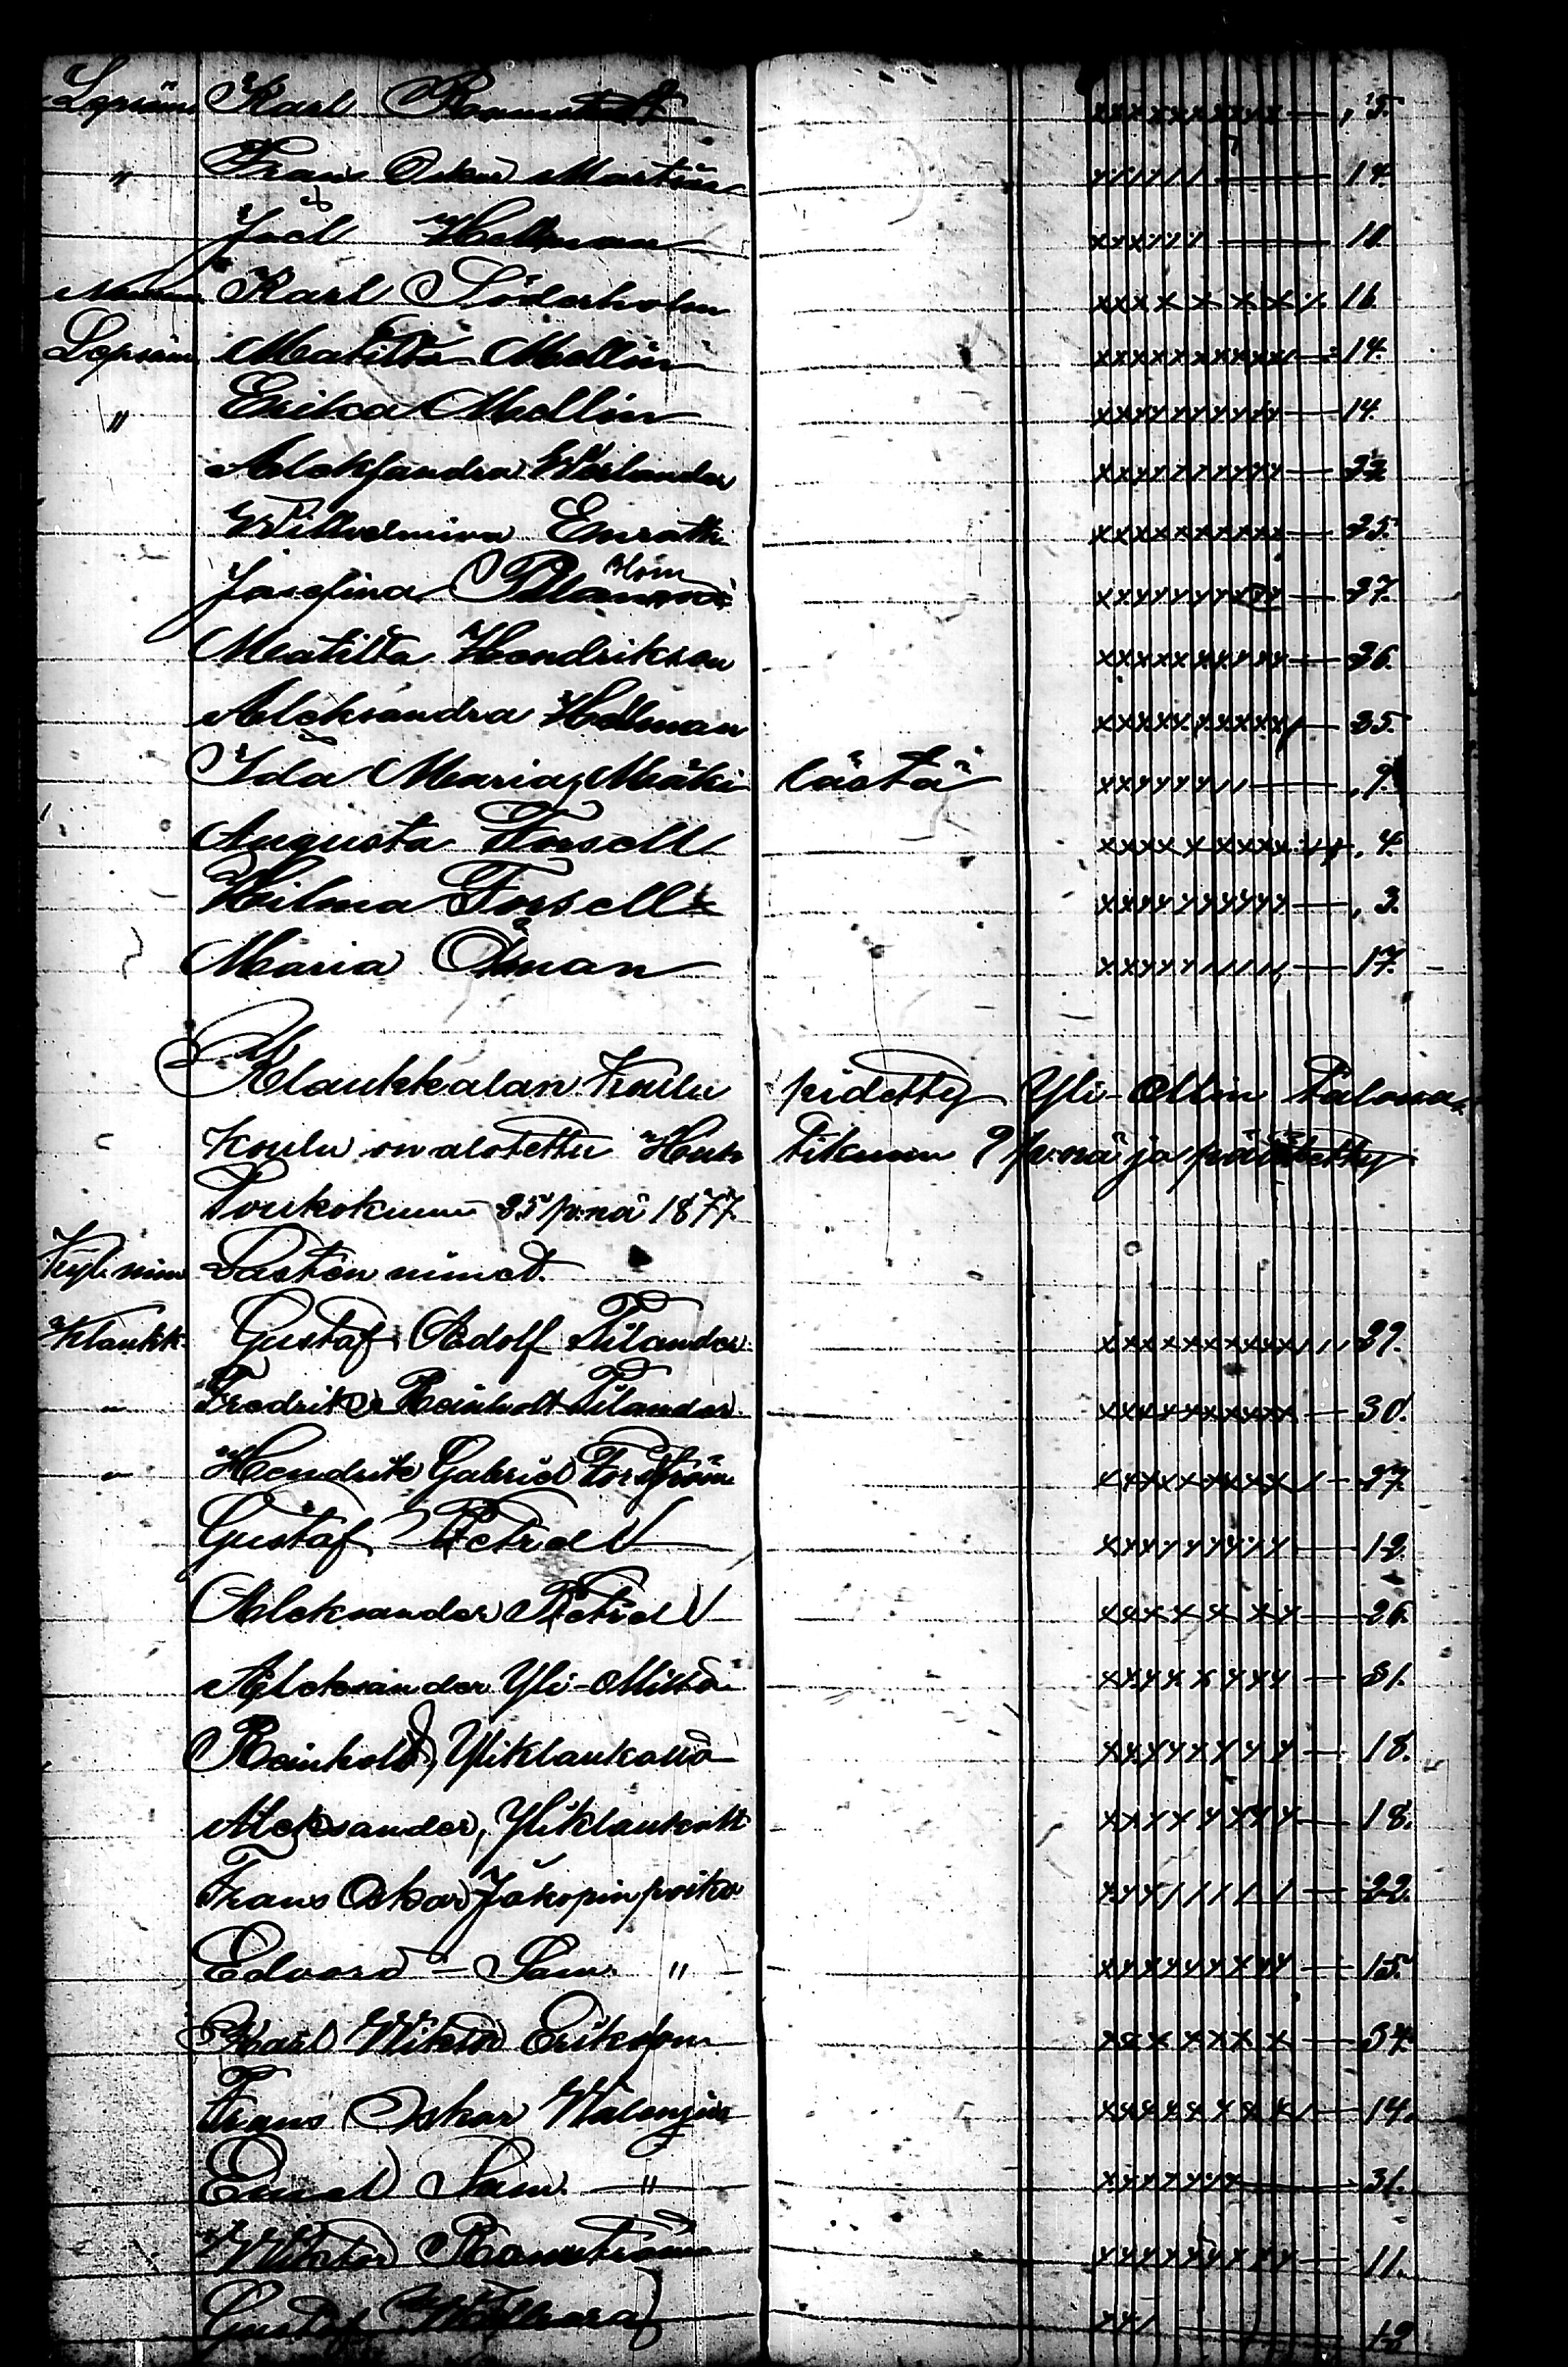 Lepsäm Karl xxxxxxxxxx — , 5.
" Frans Oskar Martin x///// — 14.
Joel Hellman xxx/// — 10.
Karl Söderholm xxxxxxx/. 16.
Lepsäm Matilta Mellin xxxxxxxxxx/ — 14.
" Erika Mellin xxxxxxxxxx — 14.
Aleksandra xxxxxxxxxx — 32
Wilhelmina xxxxxxxxxx — 25.
Josefina xxxxxxxxxx — 27.
Matilta Hendrikson xxxxxxxxxx — 26.
Aleksandra Hellman xxxxxxxxxx/ — 25.
Ida Maria, Mäki lästä xxxxxx// — , 9.
Augusta Forsell xxxxxxxxxx//, 4.
Hilma Forsell xxxxxxxxxx — , 3.
Maria Öman xxxxx///// — 17.
Klaukkalan Koulu pidetty Yli-Ollin talossa.
Koulu on alotettu Huhtikuun 9 p:nä ja päätetty
Toukokuun 25 p:nä 1877.
Kylä nim Lasten nimet.
Klaukk. Gustaf Adolf Tilander xxxxxxxxxx/// 29.
" Fredrik Reinholt Tilander xxxxxxxxxx — 30.
" Hendrik Gabriel Forström xxxxxxxxxx/ — 27.
Gustaf Petrell xxxxxxxxx — 12.
Aleksander Petrell xxxxxxx — 26.
Aleksander Yli- xxxxxxxx — 31.
Reinhold, xxxxxxxx — 18.
Aleksander, xxxxxxxx — 18.
Frans Oskar Jakopin poika xxx///// — 22.
Edvard — Sam. " xxxxxxxxx — 15.
Karl Wiktor Erikson xxxxxxx — 34.
Frans Oskar xxxxxxxxx/ — 14.
Sam. — " xxxxxxxx — 31.
Wiktor xxxxxxxxxx — 11.
Gustaf xx/ — 12